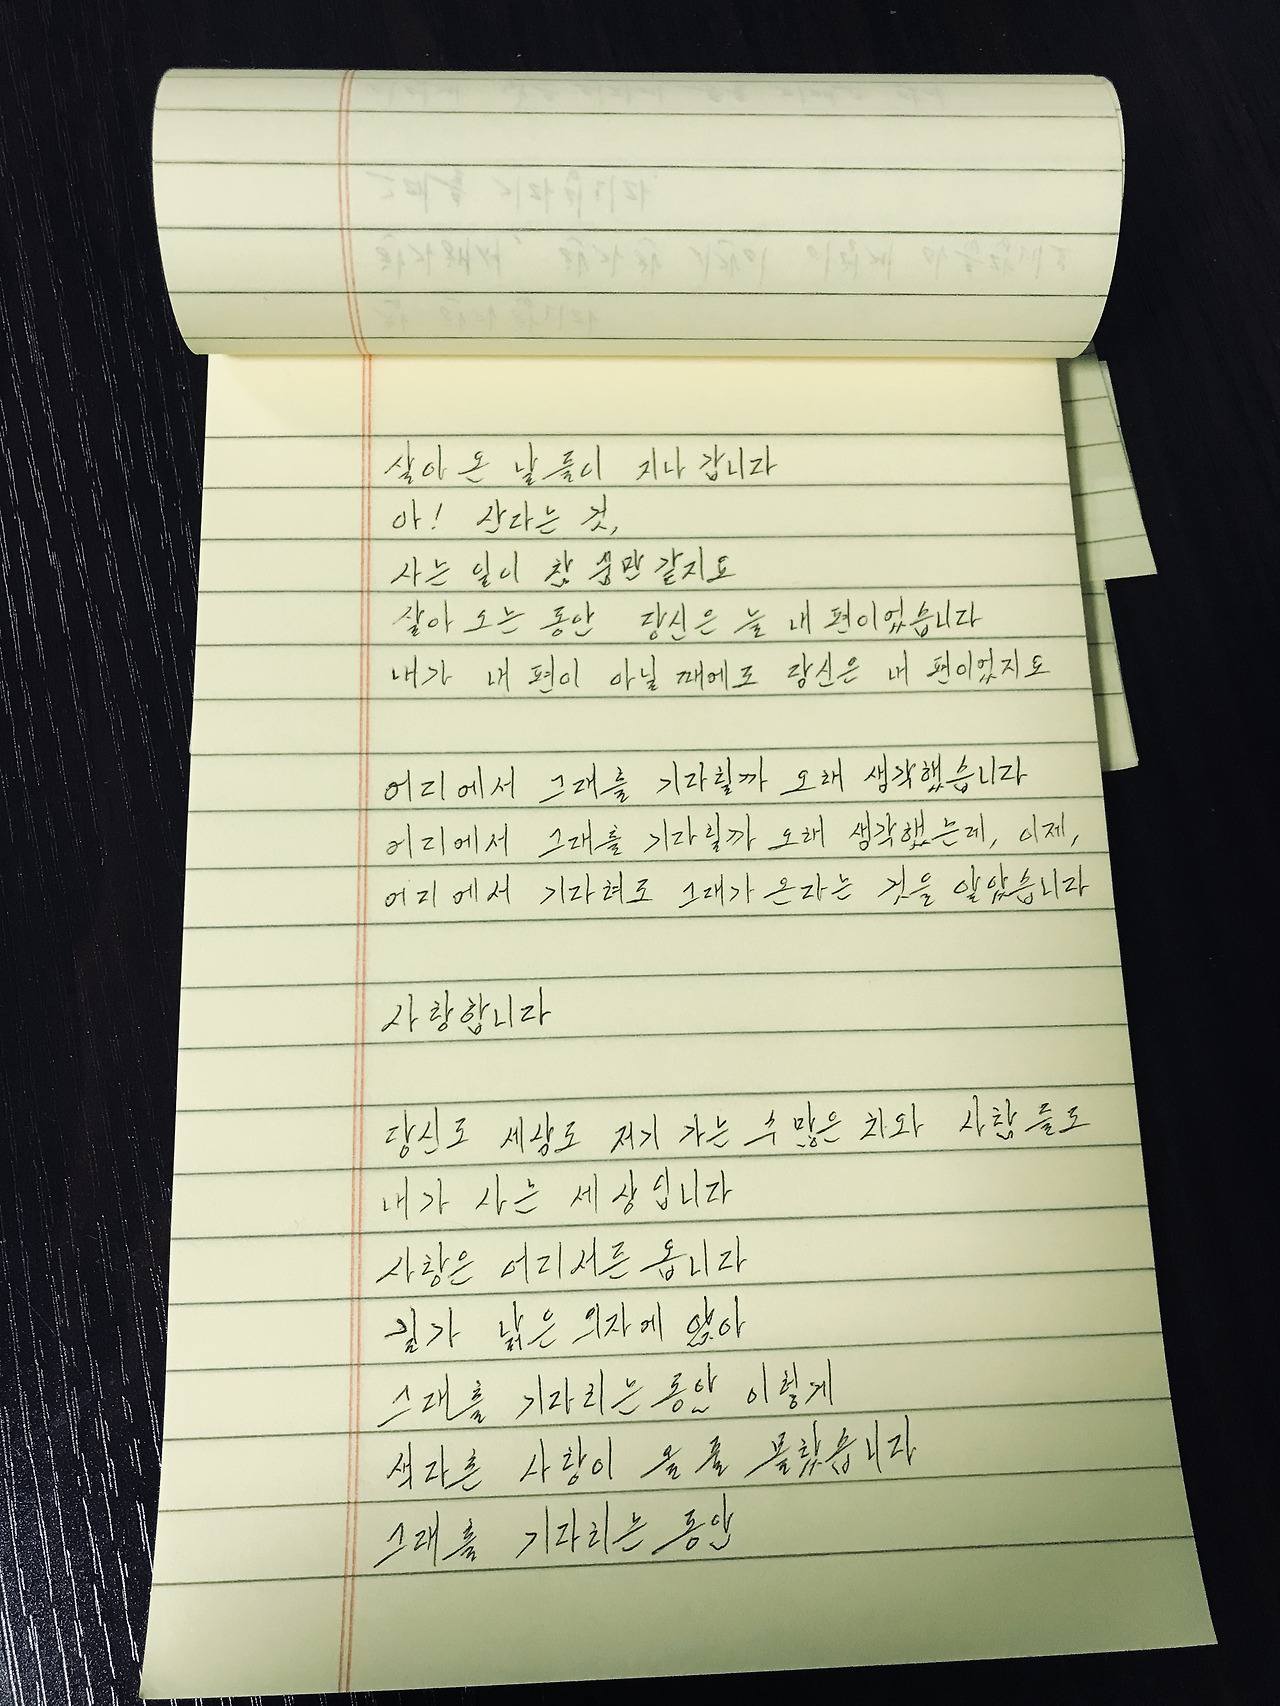 살아 온 날들이 지나갑니다
아! 산다는 것,
사는 일이 참 꿈만 같지요
살아 오는 동안 당신은 늘 내 편이었습니다
내가 내 편이 아닐 때에도 당신은 내 편이었지요
어디에서 그대를 기다릴까 오래 생각했습니다
어디에서 그대를 기다릴까 오래 생각했는데, 이제,
어디에서 기다려도 그대가 온다는 것을 알았습니다
사랑합니다
당신도 세상도 저기 가는 수많은 차와 사람들도
내가 사는 세상입니다
사랑은 어디서든 옵니다
길가 낡은 의자에 앉아
그대를 기다리는 동안 이렇게
색다른 사랑이 올 줄 몰랐습니다
그대를 기다리는 동안